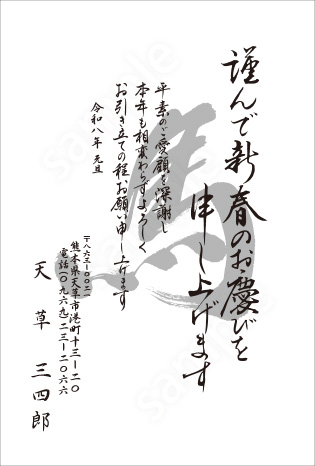 謹んで新春のお慶びを
申し上げます
平素のご愛顧を深謝し
本年も相変わらずよろしく
お引き立ての程お願い申し上げます
令和八年 元旦
〒八六三ー〇〇二一
熊本県天草市港町十三ー二〇
電話(〇九六九)二三ー二〇六六
天草 三四郎
馬
sample